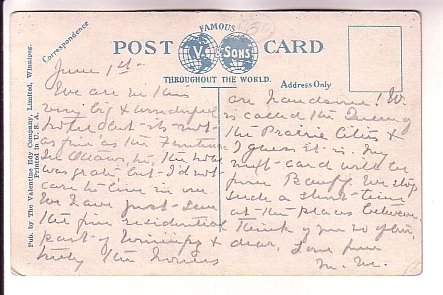 FAMOUS
POST CARD
V & SONS
THROUGHOUT THE WORLD.
Correspondence
Address Only
Pub. by The Valentine Edy Company, Limited, Winnipeg.
Printed in U. S. A.
June 1st
We are in this
very big & wonderful
hotel but its not
as fine as the
in Ottawa,
was quite but I'd not
care to live in one
We have just seen
the fine residential
part of Winnipeg &
truly the houses
are handsome! W.
is called the Queen of
the Prairie Cities &
I guess it is. My
next card will be
from Banff. We stop
such a short time
at the places between.
Think of you so often,
dear, Love from
M. M.